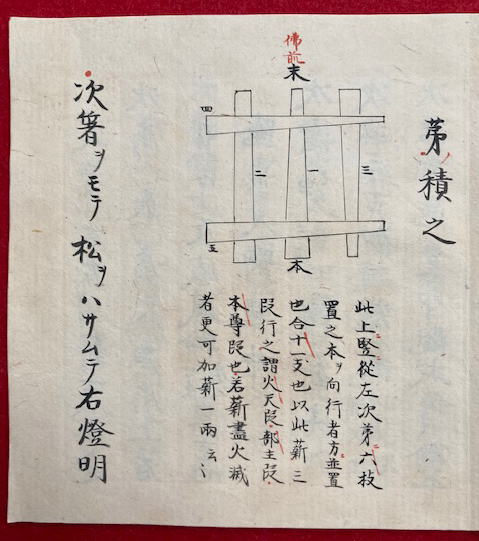 第積之
佛前
末
四
二
一
三
五
本
此上竪從左次第六枝
置之本ヲ向行者方並置
也合十一支也以此薪三
段行之謂火天段部主段
本尊段也若薪盡火滅
者更可加薪一兩云〻
次箸ヲモテ松ヲハサムテ右燈明